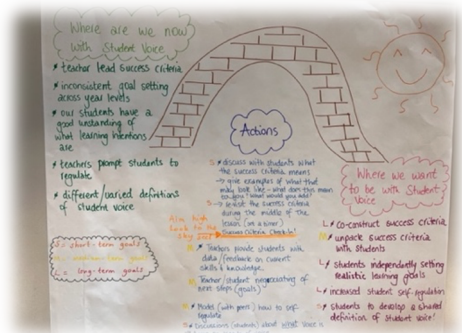 Where are we now
with Student Voice
* teacher lead success criteria
* inconsistent goal setting
across year levels
* our students have a
good understanding of
what learning intentions
are
* teachers prompt students to
regulate
* different/varied definitions
of student voice
S = short-term goals
M = medium-term goals
L = long-term goals
Actions
S * discuss with students what
the success criteria means
→ give examples of what that
may look like - what does this mean
to you? What would you add?
S → revisit the success criteria
during the middle of the
lesson (on a timer)
Success Criteria Check In!
Also high
back to the
M * Teachers provide students with
data/feedback on current
skills & knowledge.
M * Teacher/student negotiating of
next steps (goals)
M * Model (with peers) how to self
regulate
S * Discussions (students) about what voice is
Where we want
to be with Student
Voice
L * co-construct success criteria
M * unpack success criteria
with students
L * students independently setting
realistic learning goals
L * increased student self-regulation
S * students to develop a shared
definition of student voice!